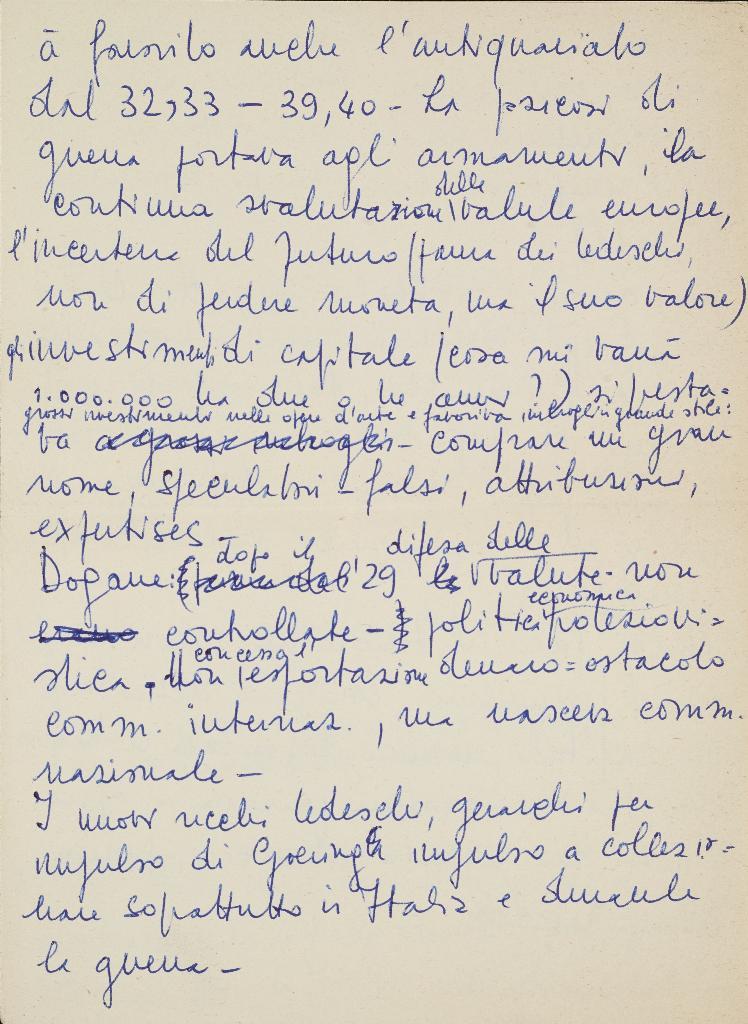 à favorito anche l'antiquariato
dal 32,33 – 39,40 – La psicosi di
guerra portava agli armamenti, la
continua svalutazione delle valute europee,
l'incertezza del futuro (paura dei tedeschi,
non di perdere moneta, ma il suo valore)
gli investimenti di capitale (cosa mi varrà
1.000.000 tra due o tre anni?) si presta=
grossi investimenti nelle opere d'arte e favoriva imbrogli in grande stile:
va a grossi imbrogli – comprare un gran
nome, speculatori – falsi, attribuzioni,
expertises –
Dogane: dopo il '29 difesa delle valute – non
controllate – politica economica protezioni=
stica. Non concessa l'esportazione denaro = ostacolo
comm. internaz., ma nascere comm.
nazionale –
I nuovi ricchi tedeschi, gerarchi per
impulso di Goering impulso a collezio=
nare soprattutto in Italia e durante
la guerra –